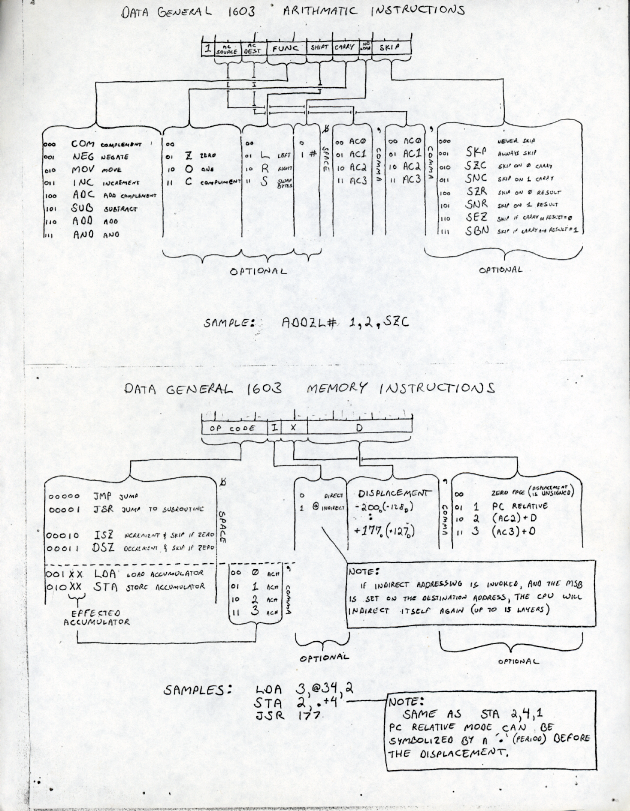 DATA GENERAL 1603 ARITHMATIC INSTRUCTIONS
1 AC SOURCE AC DEST FUNC SHIFT CARRY NO LOAD SKIP
000 COM COMPLEMENT
001 NEG NEGATE
010 MOV MOVE
011 INC INCREMENT
100 ADC ADD COMPLEMENT
101 SUB SUBTRACT
110 ADD ADD
111 AND AND
00
01 Z ZERO
10 O ONE
11 C COMPLIMENT
00
01 L LEFT
10 R RIGHT
11 S SWAP BYTES
0
1 #
SPACE
00 AC0
01 AC1
10 AC2
11 AC3
, COMMA
00 AC0
01 AC1
10 AC2
11 AC3
, COMMA
000 NEVER SKIP
001 SKP ALWAYS SKIP
010 SZC SKIP ON 0 CARRY
011 SNC SKIP ON 1 CARRY
100 SZR SKIP ON 0 RESULT
101 SNR SKIP ON 1 RESULT
110 SEZ SKIP IF CARRY OR RESULT=0
111 SBN SKIP IF CARRY AND RESULT=1
OPTIONAL
OPTIONAL
SAMPLE: ADDZL# 1,2,SZC
DATA GENERAL 1603 MEMORY INSTRUCTIONS
OP CODE I X D
00000 JMP JUMP
00001 JSR JUMP TO SUBROUTINE
00010 ISZ INCREMENT & SKIP IF ZERO
00011 DSZ DECREMENT & SKIP IF ZERO
001XX LDA LOAD ACCUMULATOR
010XX STA STORE ACCUMULATOR
EFFECTED
ACCUMULATOR
SPACE
00 0 AC#
01 1 AC#
10 2 AC#
11 3 AC#
, COMMA
0 DIRECT
1 @ INDIRECT
DISPLACEMENT
-200₈(-128₁₀)
:
+177₈(+127₁₀)
, COMMA
00 ZERO PAGE (DISPLACEMENT IS UNSIGNED)
01 1 PC RELATIVE
10 2 (AC2)+D
11 3 (AC3)+D
NOTE:
IF INDIRECT ADDRESSING IS INVOKED, AND THE MSB
IS SET ON THE DESTINATION ADDRESS, THE CPU WILL
INDIRECT ITSELF AGAIN (UP TO 15 LAYERS)
OPTIONAL
OPTIONAL
SAMPLES: LDA 3,@34,2
STA 2,.+4
JSR 177
NOTE:
SAME AS STA 2,4,1
PC RELATIVE MODE CAN BE
SYMBOLIZED BY A '.' (PERIOD) BEFORE
THE DISPLACEMENT.